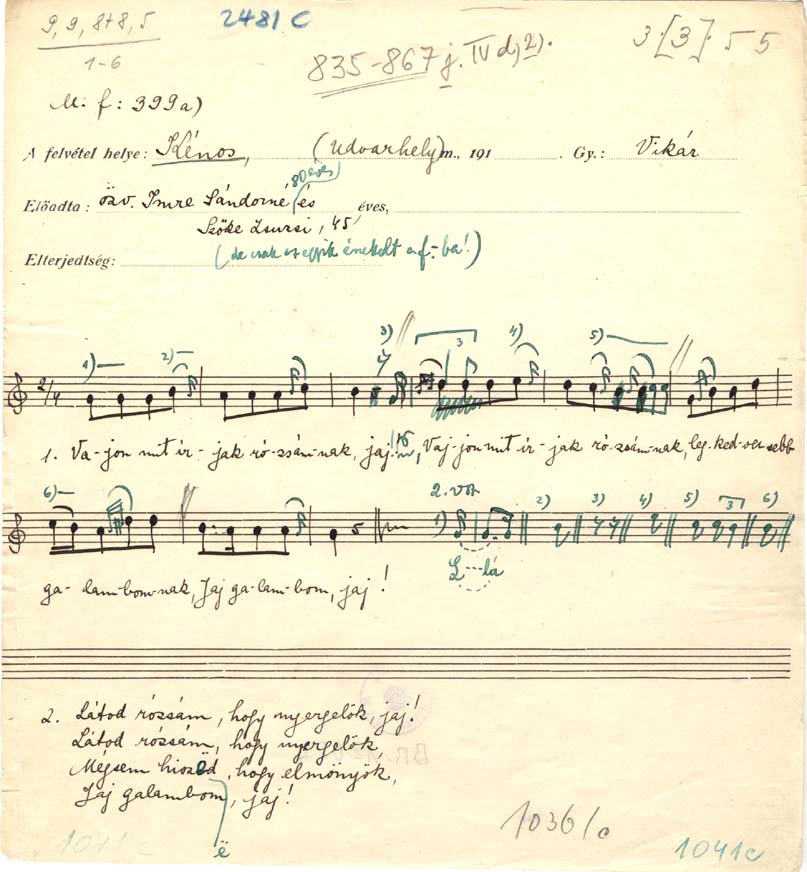 9, 9, 8+8, 5
1-6
2481 C
835-867 j. IV d) 2).
3 [3] 5 5
M. f: 399a)
A felvétel helye: Kénos, (Udvarhely)m., 191 . Gy.: Vikár
80 éves
Előadta: özv. Imre Sándorné és éves,
Szőke Zsuzsi, 45
Elterjedtség: (de csak az egyik énekelt a f.-ba!)
1) 2) 3) 3 4) 5)
2/4
1. Va-jon mit ír-jak ró-zsám-nak, jaj! Vaj-jon mit ír-jak ró-zsám-nak, leg-ked-ve-sebb
6) 2. vsz 1) 2) 3) 4) 5) 3 6)
L---lá
ga-lam-bom-nak, Jaj ga-lam-bom, jaj!
2. Látod rózsám, hogy nyergelök, jaj!
Látod rózsám, hogy nyergelök,
Mégsem hiszed, hogy elmönyök,
Jaj galambom, jaj!
ë
1036/c
1041c
1041c